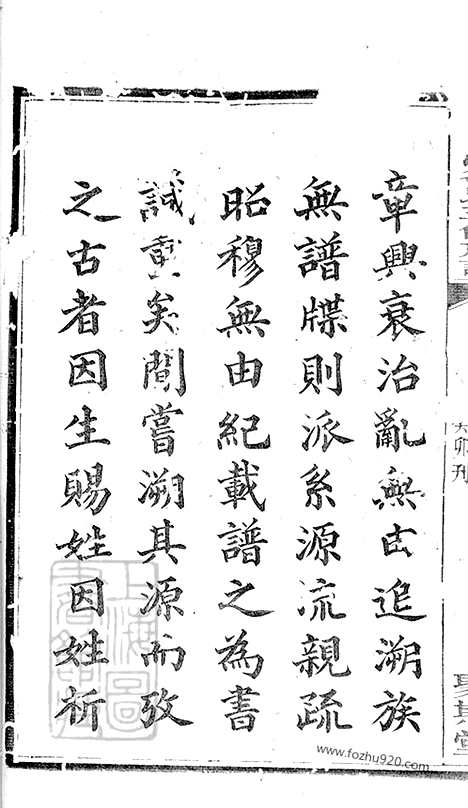 章興衰治亂無由追溯族
無譜牒則派系源流親疏
昭穆無由紀載譜之為書
誠重矣間嘗溯其源而攷
之古者因生賜姓因姓析
上海圖
www.fozhu920.com